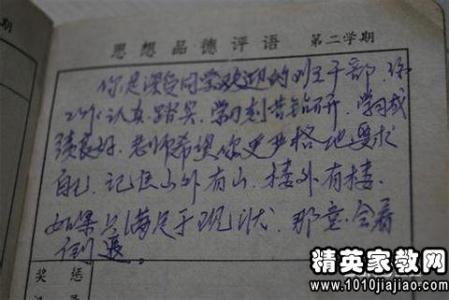 思想品德评语 第二学期
你是深受同学欢迎的班干部 你
工作认真踏实 学习刻苦钻研 学习成
绩良好 老师希望你更严格地要求
自己 记住山外有山 楼外有楼
如果只满足于现状 那意会着
倒退。
奖惩
精英家教网
www.1010jiajiao.com